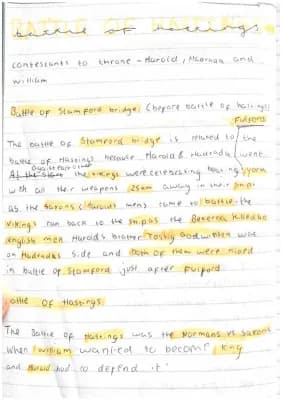 BATTLE OF HASTINGS
battle of hastings
contestants to throne - Harold, Hadrada and
william
Battle of Stamford bridge (before battle of hastings)
Fulford
The battle of Stamford bridge is related to the
battle of Hastings because Harold & Hadrada went
against each other
the vikings were celebrating having won
with all their weapons 25km away in their ships
as the Saxons (Harolds mens came to battle the
vikings ran back to the ships the killed 40
english men Harold's brother Tostig Godwinson was
on Hadradas side and both of them were killed
in battle of Stamford just after Fulford
Battle OF Hastings
The Battle of Hastings was the Normans vs Saxons
when william wanted to become king
and Harold had to defend it.